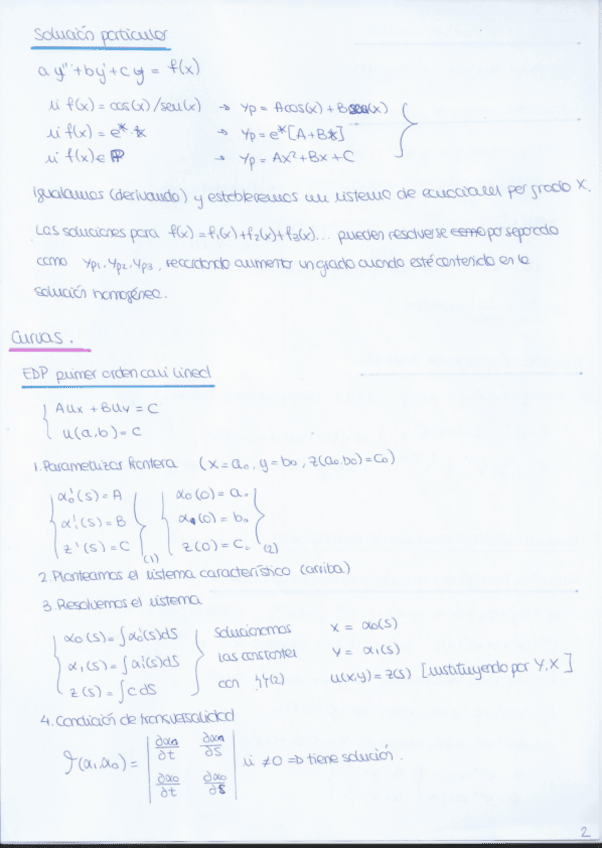 Solución particular
ay'' + by' + cy = f(x)
si f(x) = cos(x)/sen(x) → yp = Acos(x) + Bsen(x)
si f(x) = e^x · x → yp = e^x[A+Bx]
si f(x) ∈ P → yp = Ax² + Bx + C
Igualamos (derivando) y establecemos un sistema de ecuaciones por grado X.
Las soluciones para f(x) = f₁(x) + f₂(x) + f₃(x)... pueden resolverse como por separado
como yp₁, yp₂, yp₃, recordando aumentar un grado cuando esté contenido en la
solución homogénea.
Curvas.
EDP primer orden casi lineal
AUx + BUy = C
u(a,b) = C
1. Parametrizar frontera (x = a₀, y = b₀, z(a₀,b₀) = C₀)
α₀'(s) = A α₀(0) = a₀
α₁'(s) = B α₁(0) = b₀
z'(s) = C (1) z(0) = C₀ (2)
2. Planteamos el sistema característico (arriba)
3. Resolvemos el sistema
α₀(s) = ∫α₀'(s)ds solucionamos x = α₀(s)
α₁(s) = ∫α₁'(s)ds las constantes y = α₁(s)
z(s) = ∫c ds con (2) u(x,y) = z(s) [sustituyendo por Y,X]
4. Condición de transversalidad
J(α₁,α₀) = | ∂α₁/∂t ∂α₁/∂s |
| ∂α₀/∂t ∂α₀/∂s | si ≠ 0 ⇒ tiene solución.
2